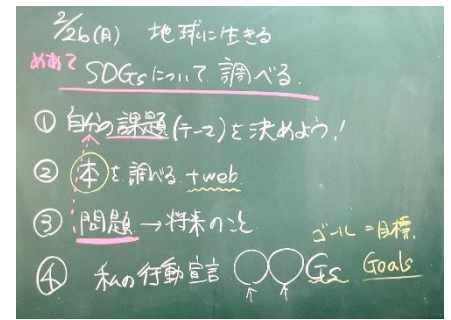 2/26(月) 地球に生きる
めあて SDGsについて調べる.
① 自分の課題(テーマ)を決めよう!
② 本を調べる +web
③ 問題 → 将来のこと
ゴール=目標
④ 私の行動宣言 ○○Gs Goals